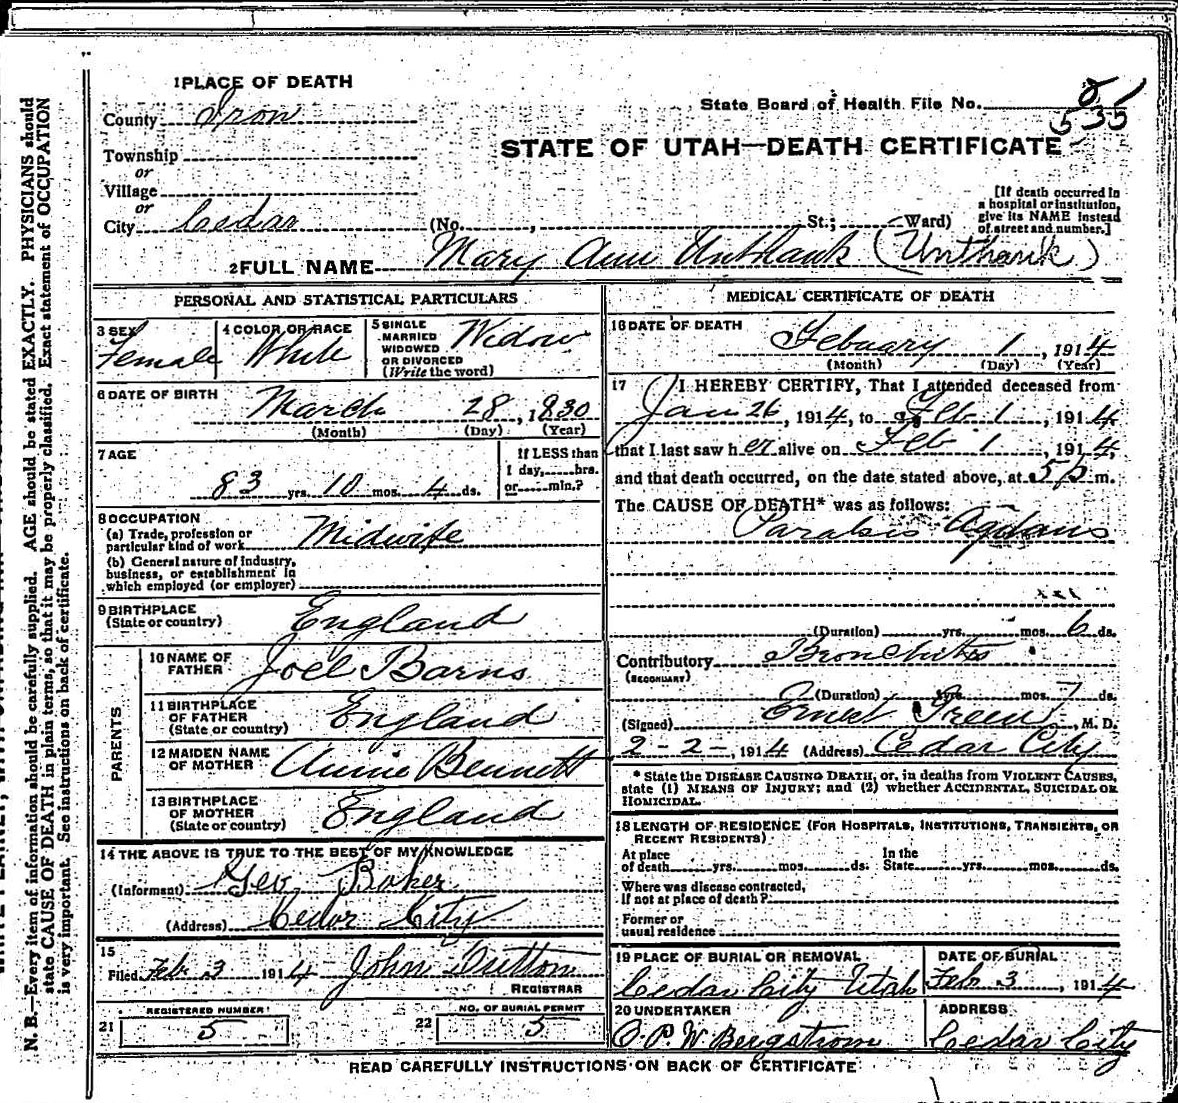 1 PLACE OF DEATH
County Iron
State Board of Health File No. 8
535
Township
or
Village
or
City Cedar
STATE OF UTAH—DEATH CERTIFICATE
(No. , St.; Ward)
[If death occurred in
a hospital or institution,
give its NAME instead
of street and number.]
2 FULL NAME Mary Ann Unthank (Unthank)
PERSONAL AND STATISTICAL PARTICULARS
3 SEX
Female
4 COLOR OR RACE
White
5 SINGLE
MARRIED
WIDOWED
OR DIVORCED
(Write the word)
Widow
6 DATE OF BIRTH
March 28, 1830
(Month) (Day) (Year)
7 AGE
83 yrs. 10 mos. 4 ds.
If LESS than
1 day, hrs.
or min.?
8 OCCUPATION
(a) Trade, profession or
particular kind of work Midwife
(b) General nature of industry,
business, or establishment in
which employed (or employer)
9 BIRTHPLACE
(State or country) England
PARENTS
10 NAME OF
FATHER Joel Barns
11 BIRTHPLACE
OF FATHER
(State or country) England
12 MAIDEN NAME
OF MOTHER Annie Bennett
13 BIRTHPLACE
OF MOTHER
(State or country) England
14 THE ABOVE IS TRUE TO THE BEST OF MY KNOWLEDGE
(Informant) Geo. Baker
(Address) Cedar City
15
Filed Feb 3 1914 John
REGISTRAR
REGISTERED NUMBER
21 5
NO. OF BURIAL PERMIT
22 5
MEDICAL CERTIFICATE OF DEATH
16 DATE OF DEATH
Febuary 1, 1914
(Month) (Day) (Year)
17 I HEREBY CERTIFY, That I attended deceased from
Jan 26, 1914, to Feb 1, 1914
that I last saw her alive on Feb 1, 1914,
and that death occurred, on the date stated above, at 5 p m.
The CAUSE OF DEATH* was as follows:
Paralsis Agitans
(Duration) yrs. mos. 6 ds.
Contributory Bronchitis
(SECONDARY)
(Duration) yrs. mos. 7 ds.
(Signed) Ernest Green, M. D.
2-2-, 1914 (Address) Cedar City
* State the DISEASE CAUSING DEATH, or, in deaths from VIOLENT CAUSES,
state (1) MEANS OF INJURY; and (2) whether ACCIDENTAL, SUICIDAL OR
HOMICIDAL.
18 LENGTH OF RESIDENCE (FOR HOSPITALS, INSTITUTIONS, TRANSIENTS, OR
RECENT RESIDENTS)
At place
of death yrs. mos. ds.
In the
State yrs. mos. ds.
Where was disease contracted,
If not at place of death?
Former or
usual residence
19 PLACE OF BURIAL OR REMOVAL
Cedar City Utah
DATE OF BURIAL
Feb 3, 1914
20 UNDERTAKER
O. P. W. Bergstrom
ADDRESS
Cedar City
READ CAREFULLY INSTRUCTIONS ON BACK OF CERTIFICATE
N. B.—Every item of information should be carefully supplied. AGE should be stated EXACTLY. PHYSICIANS should
state CAUSE OF DEATH in plain terms, so that it may be properly classified. Exact statement of OCCUPATION
is very important. See instructions on back of certificate.